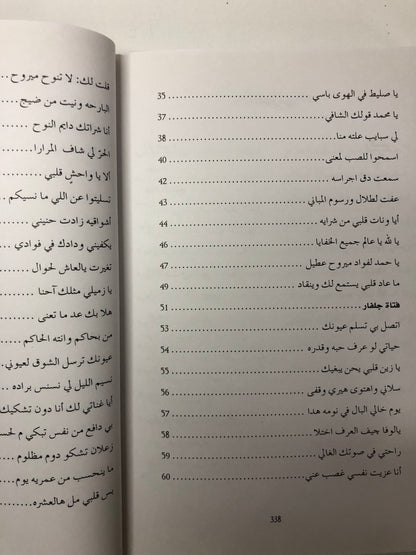 يا صليط في الهوى باسي ........ 35
يا محمد قولك الشافي ........ 37
لي سبايب علته منا ........ 38
اسمحوا للصب لمعنى ........ 40
سمعت دق اجراسه ........ 42
عفت لطلال ورسوم المباني ........ 43
أيا ونات قلبي من شرايه ........ 44
يا لله يا عالم جميع الخفايا ........ 46
يا حمد لفواد ميروح عطيل ........ 47
ما عاد قلبي يستمع لك وينقاد ........ 49
فتاة جلفار ........ 51
اتصل بي تسلم عيونك ........ 53
حياتي لو عرف حبه وقدره ........ 54
يا زين قلبي يحن يبغيك ........ 55
سلاني واهتوى هيري وقفى ........ 56
يوم خالي البال في نومه هدا ........ 57
يالوفا جيف العرف اختلا ........ 58
راحتي في صوتك الغالي ........ 59
أنا عزيت نفسي غصب عني ........ 60
338
قلت لك: لا تنوح ميروح ...
البارحه ونيت من ضيج ...
أنا شراتك دايم النوح ...
الحر لي شاف المرارا ...
ألا يا واحش قلبي ...
تسليتوا عن اللي ما نسيكم ...
أشواقيه زادت حنيني ...
يكفيني ودادك في فوادي ...
تغيرت يالعاش لحوال ...
يا زميلي مثلك آحنا ...
هلا بك عد ما تعنى ...
من بحاكم وانته الحاكم ...
عيونك ترسل الشوق لعيوني
نسيم الليل لي نسنس براده ...
أيا غناتي لك أنا دون تشكيك
بي دافع من نفس تبكي م لحس
زعلان تشكو دوم مظلوم ...
ما ينحسب من عمريه يوم ...
بس قلبي مل هالعشره ...